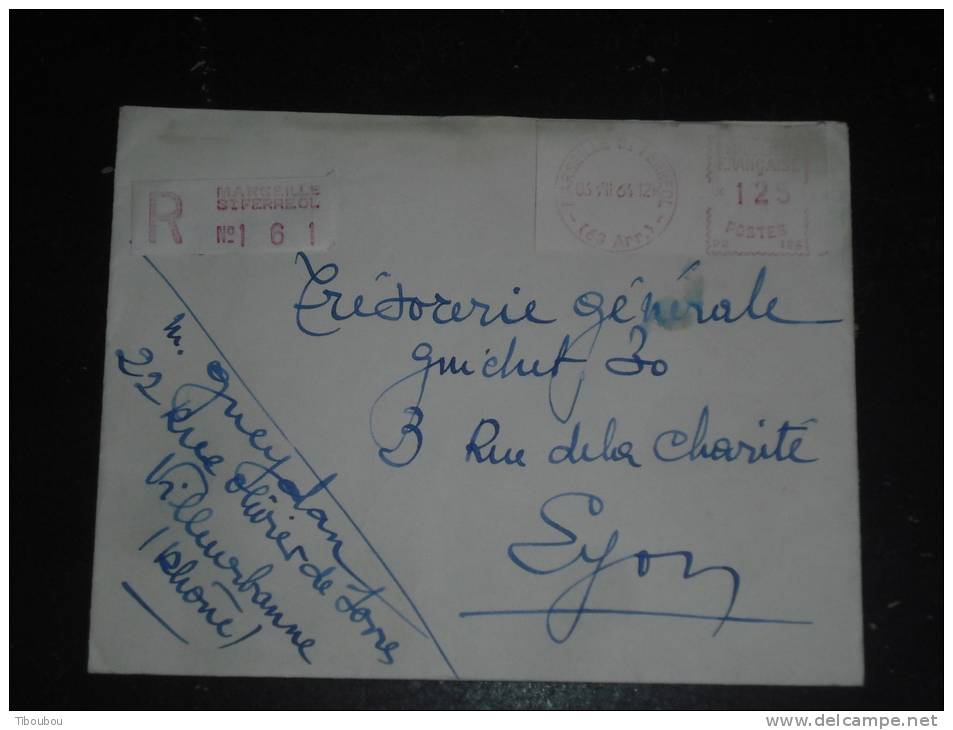 R
MARSEILLE
ST FERREOL
Nº 1 6 1
MARSEILLE ST FERREOL
03 VII 64 12H
(6e Arr.)
FRANÇAISE
125
POSTES
Trésorerie générale
guichet 30
3 Rue de la Charité
Lyon
M. Gueydan
22 Rue Olivier de Serres
Villeurbanne
(Rhône)
Tiboubou
www.delcampe.net